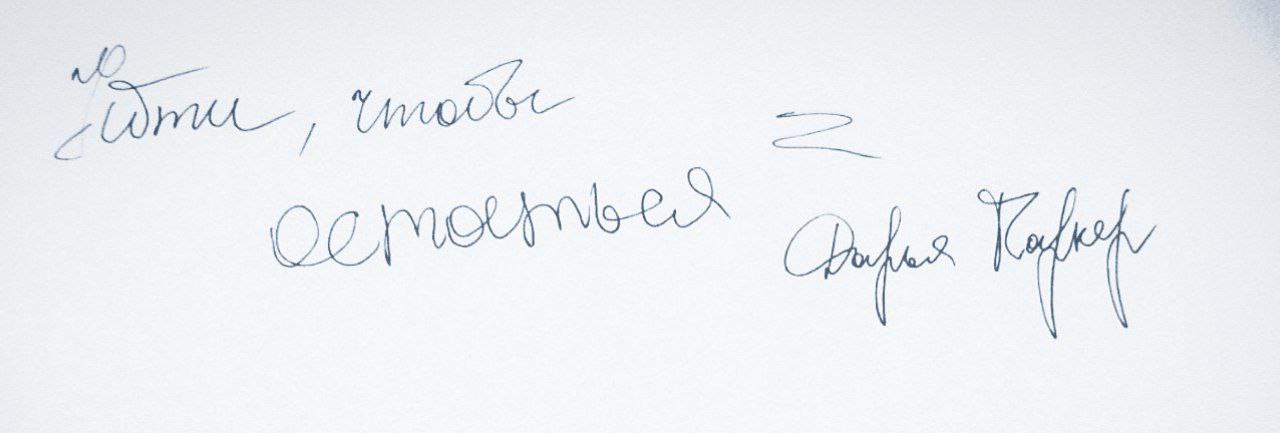 Идти, чтобы
остаться
Дарья Паркер